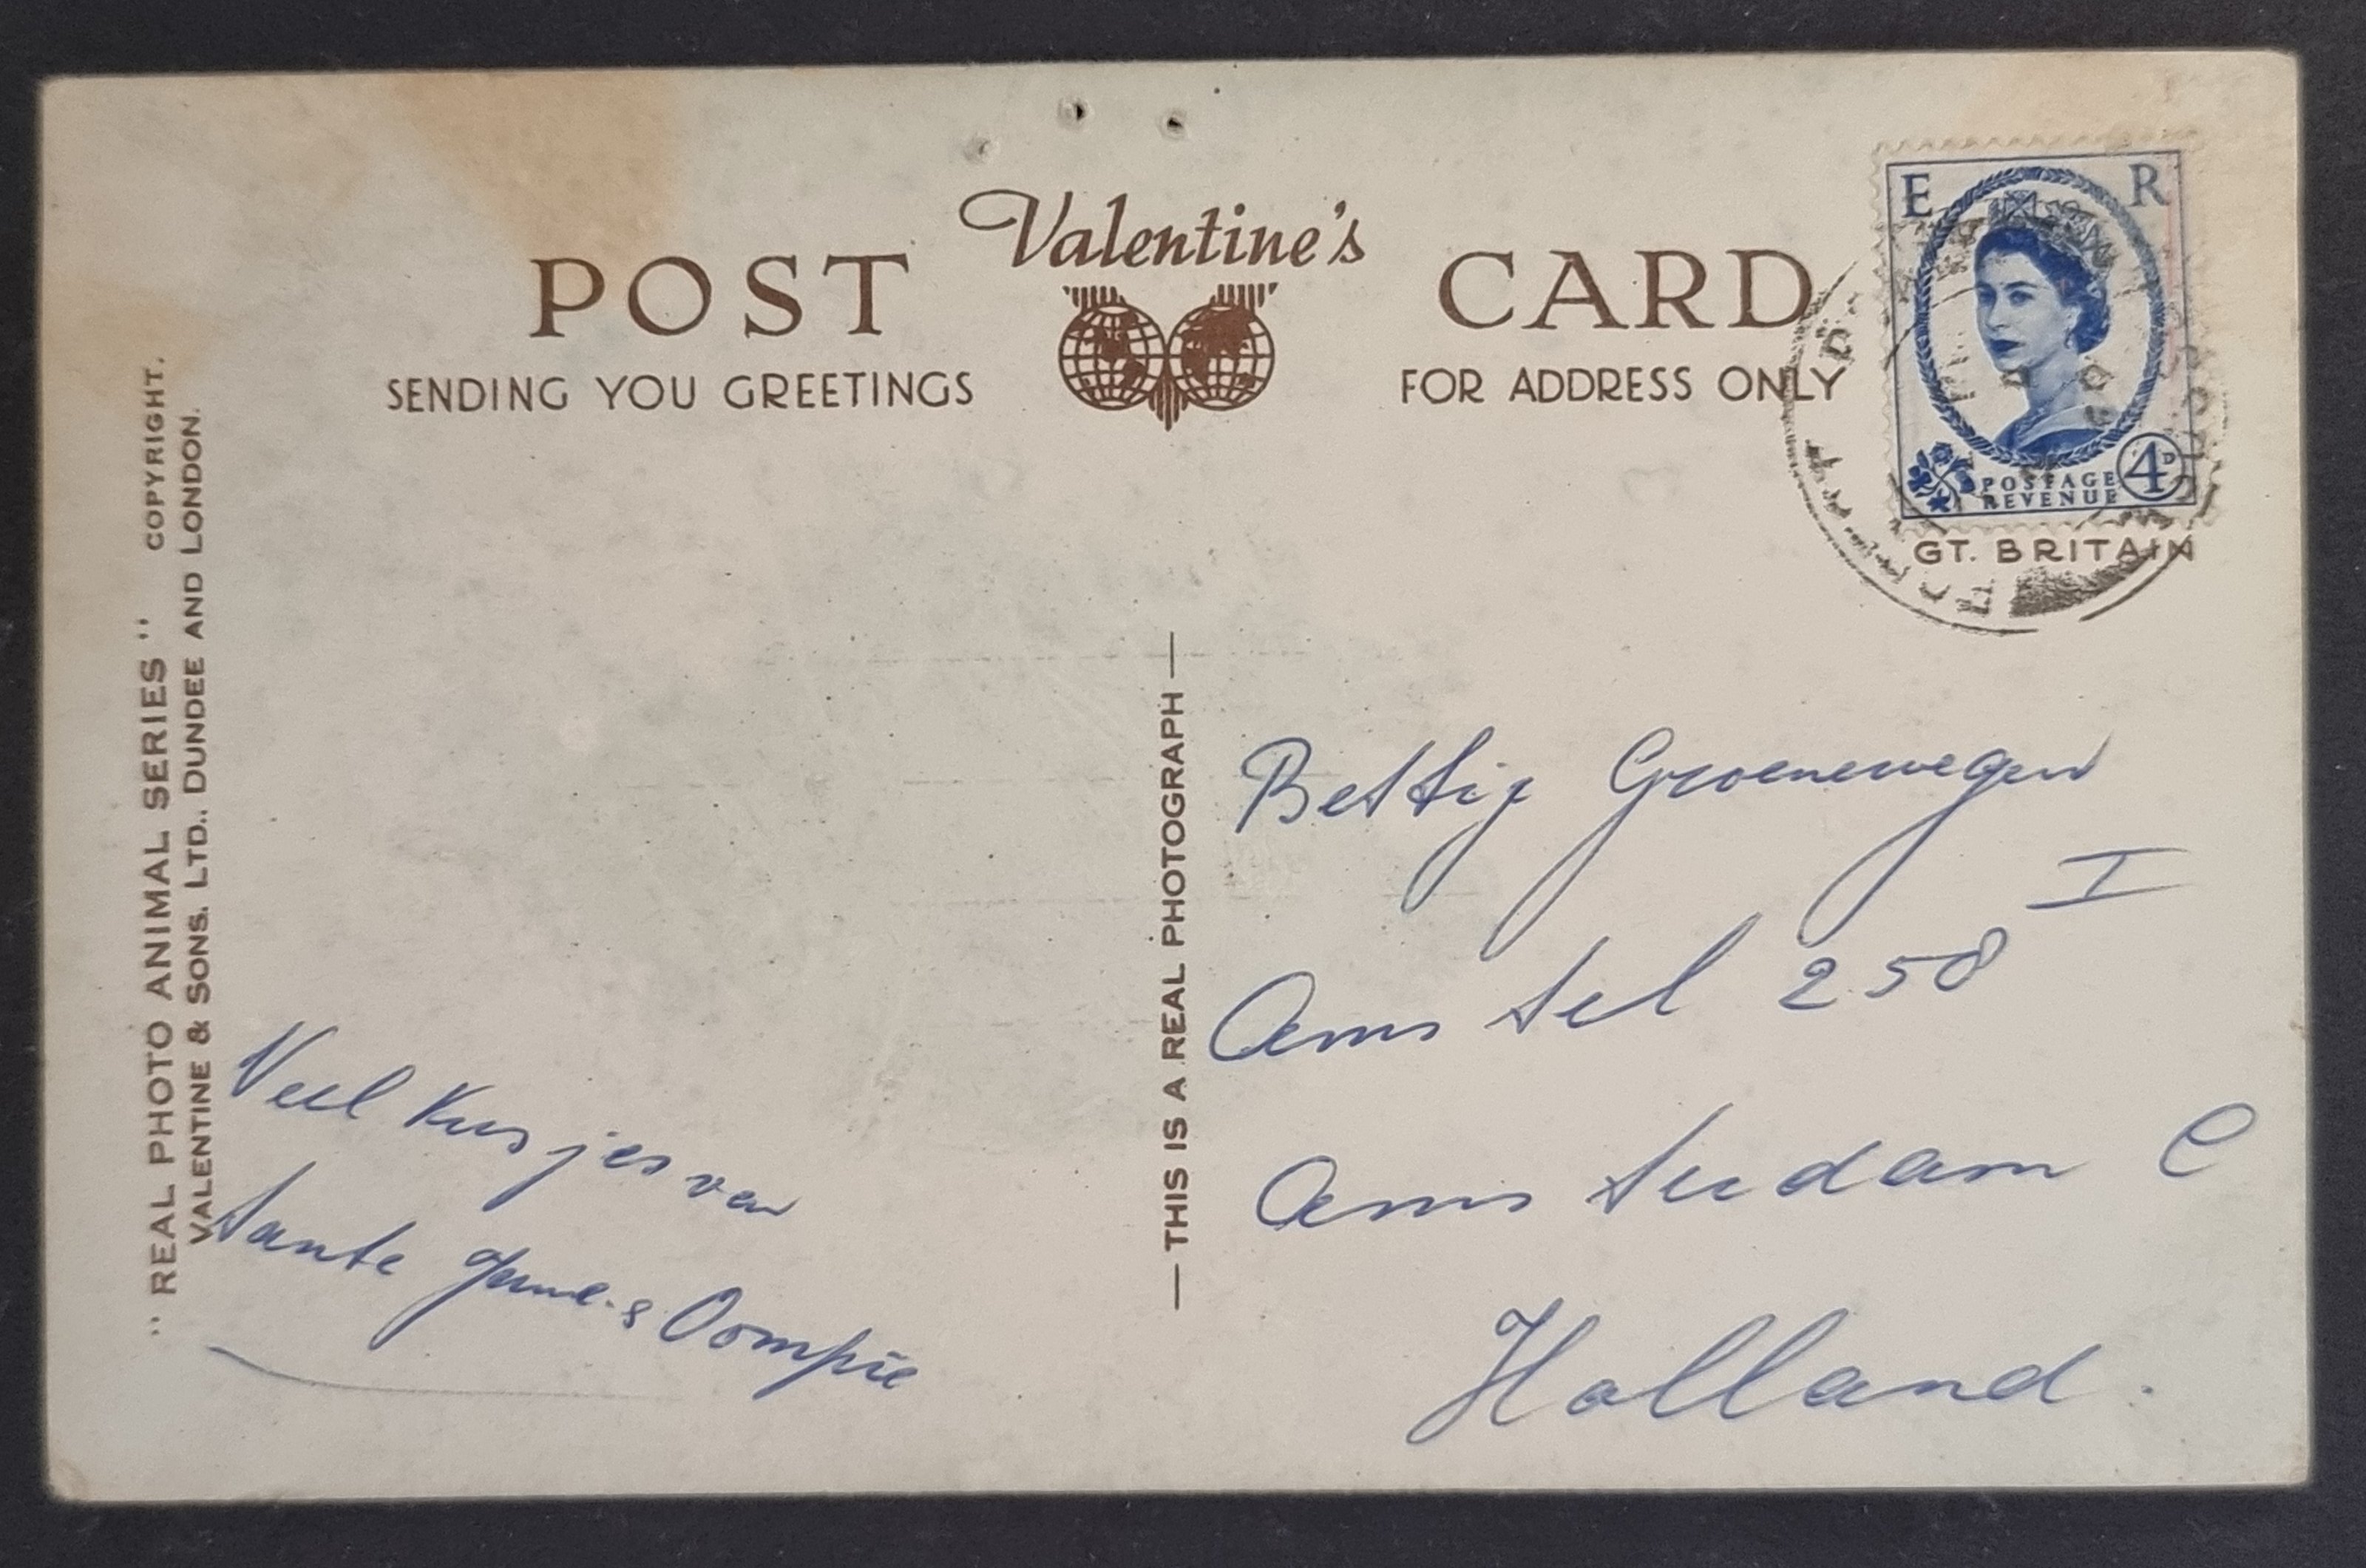 Valentine's
POST CARD
SENDING YOU GREETINGS
FOR ADDRESS ONLY
E R
POSTAGE
REVENUE
4D
GT. BRITAIN
"REAL PHOTO ANIMAL SERIES" COPYRIGHT.
VALENTINE & SONS. LTD., DUNDEE AND LONDON.
— THIS IS A REAL PHOTOGRAPH —
Veel Kusjes van
tante & Oompie
Groenewegen
Amstel 258 I
Amsterdam C
Holland.